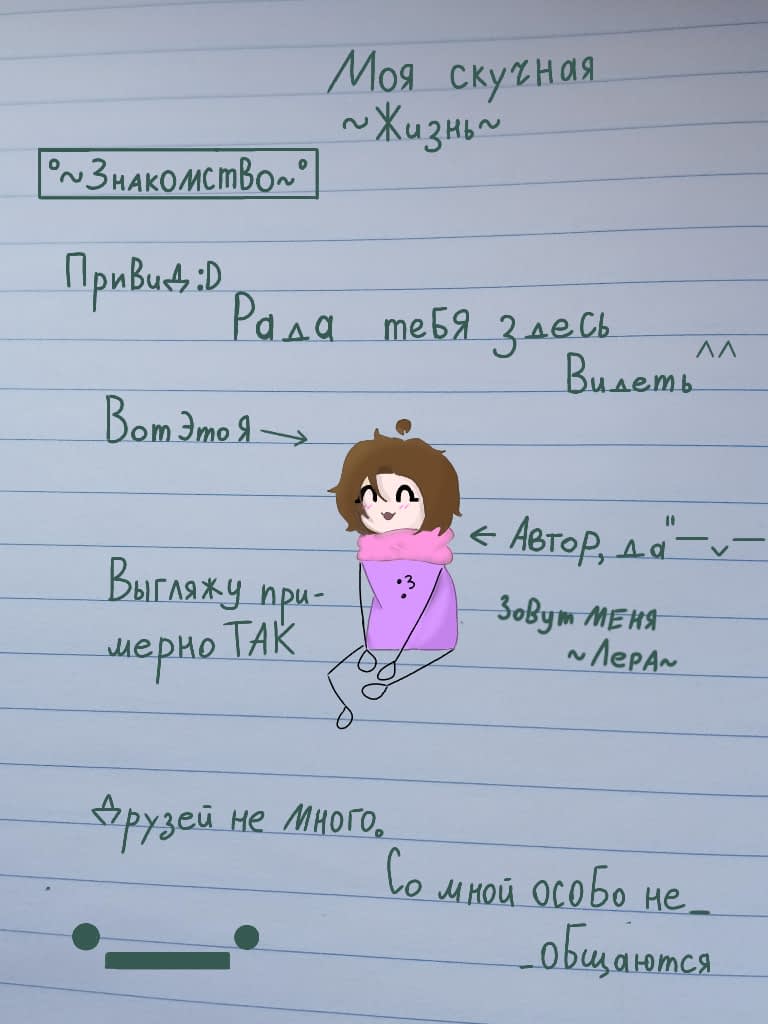 Моя скучная
~Жизнь~
°~Знакомство~°
Привид :D
Рада тебя здесь
Видеть ^^
Вот это я →
← Автор, да "—ᵥ—
Выгляжу при-
мерно ТАК
:3
Зовут меня
~Лера~
Друзей не много.
Со мной особо не_
_общаются